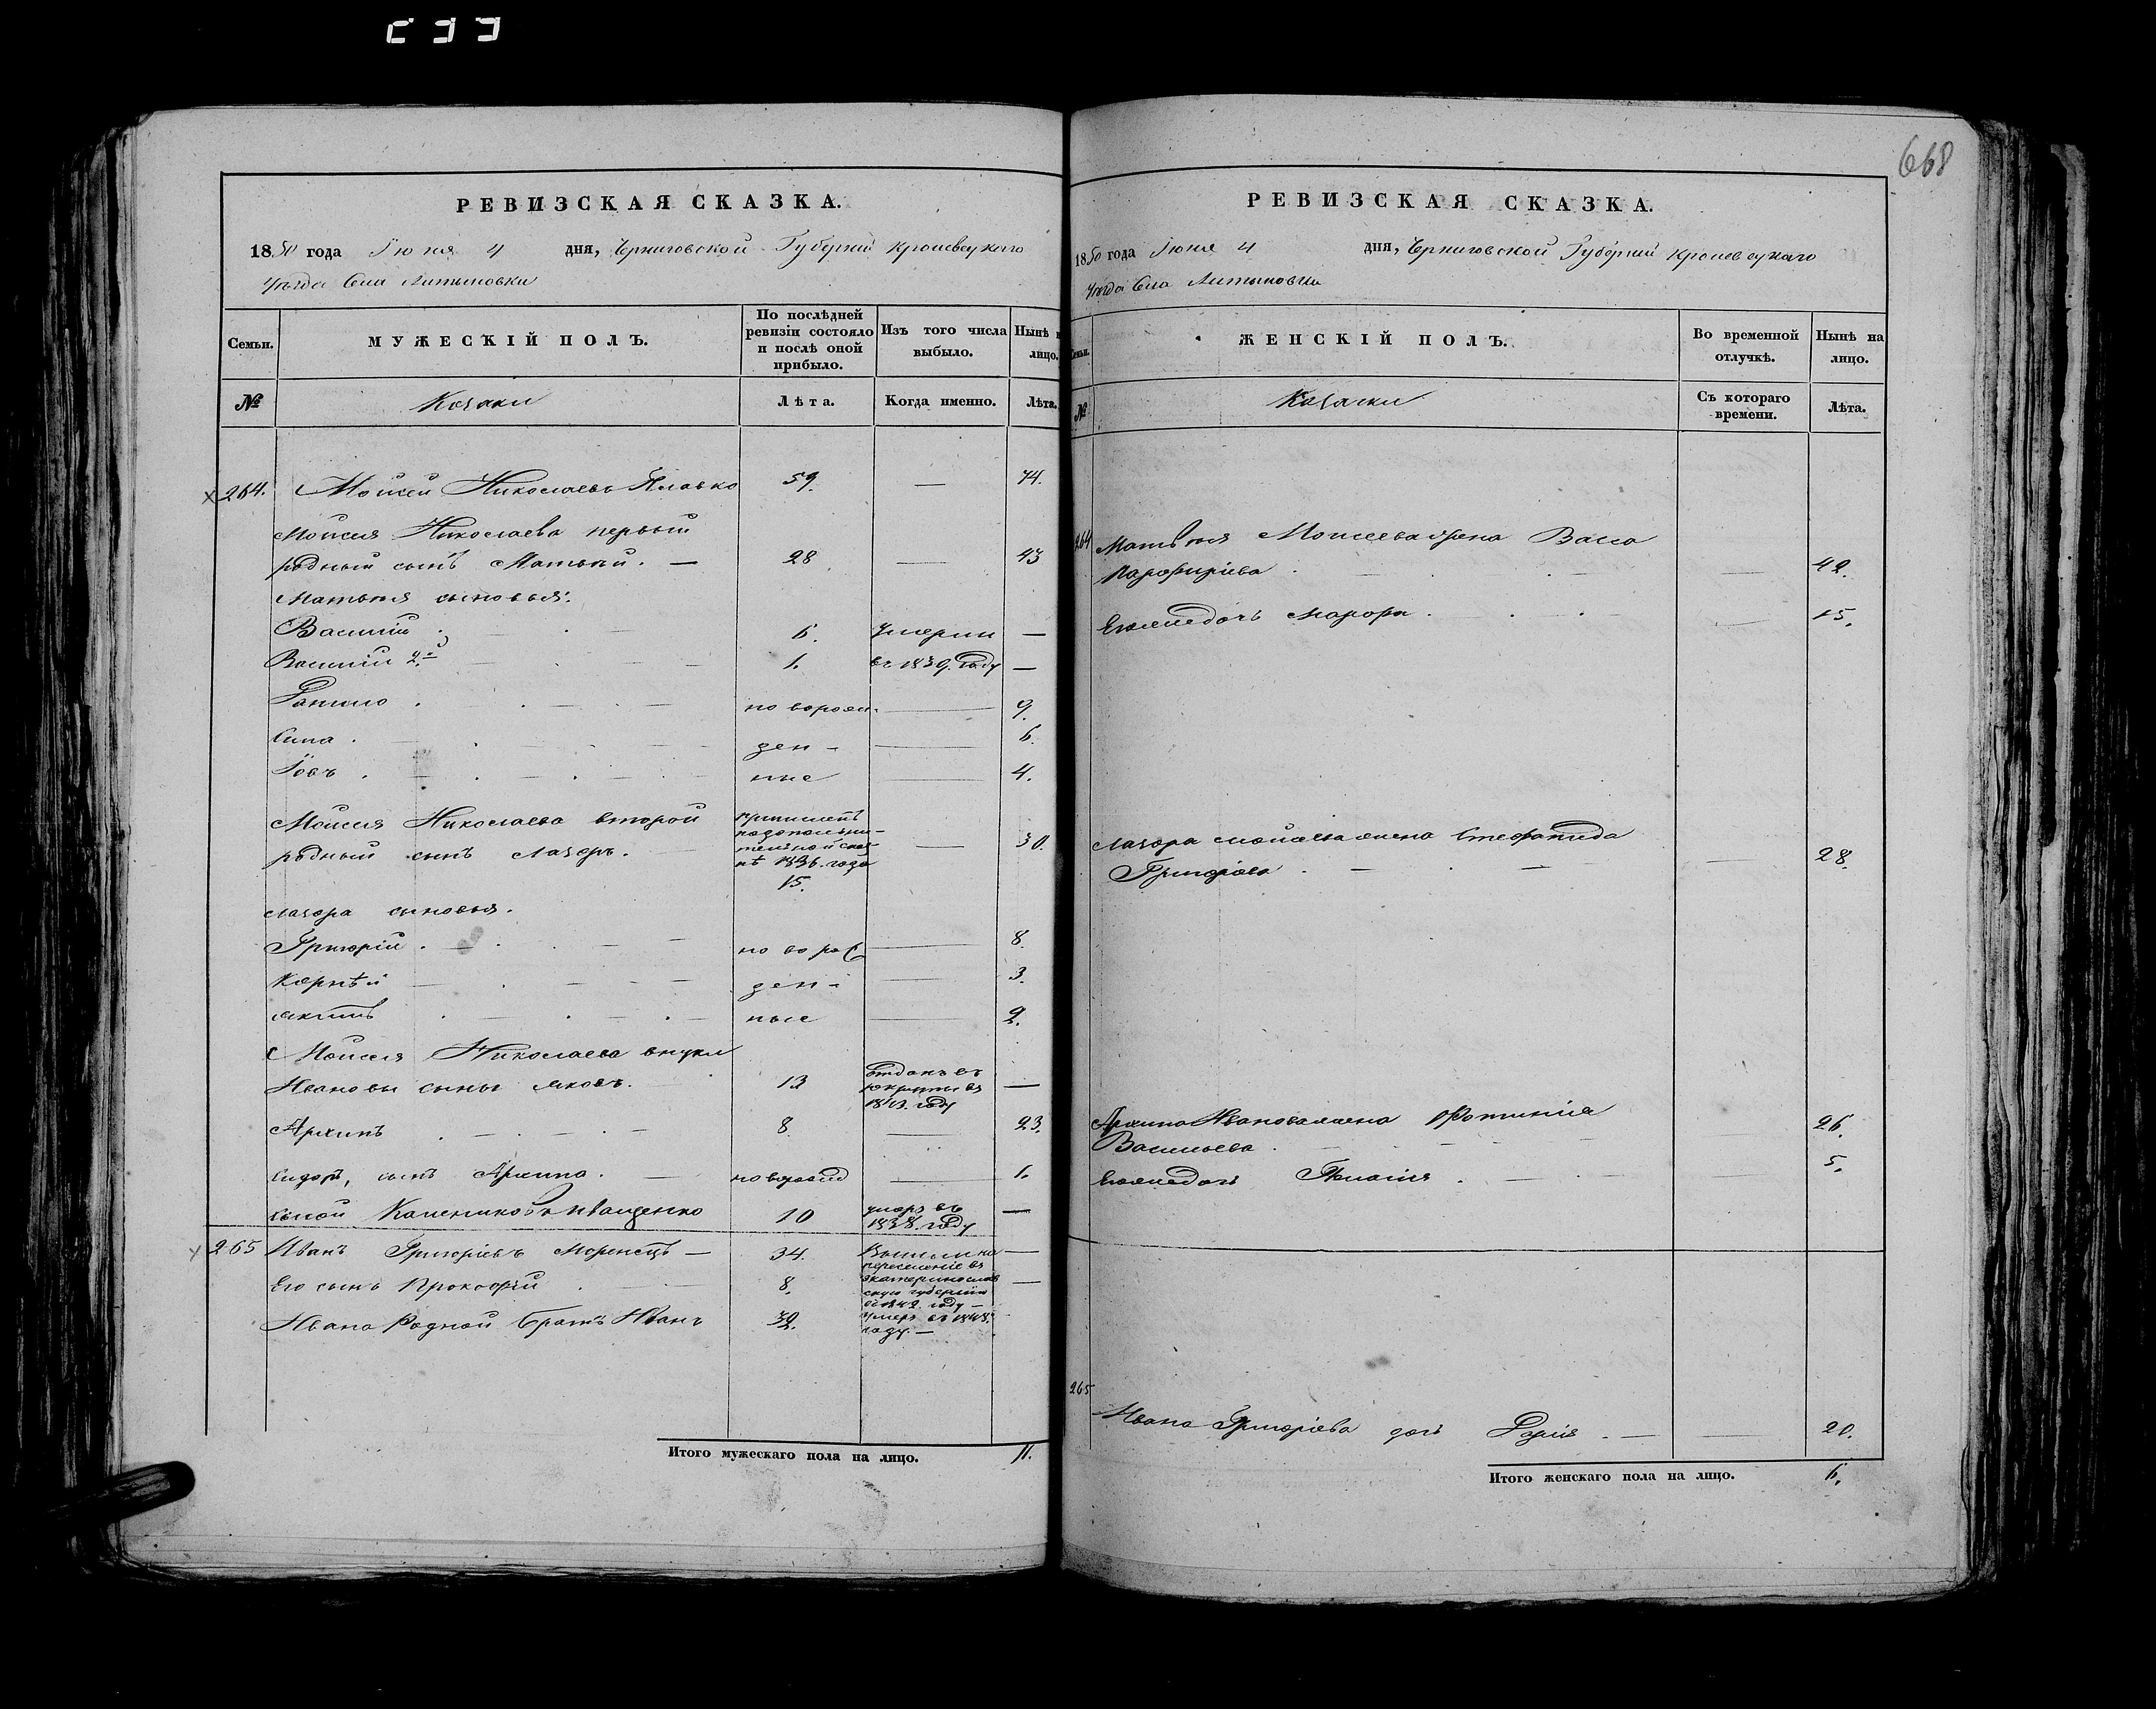 668
РЕВИЗСКАЯ СКАЗКА.
1850 года Июня 4 дня, Черниговской Губернии Кролевецкаго
Уезда Села Литвиновки
Семьи.
МУЖЕСКІЙ ПОЛЪ.
По послѣдней
ревизіи состояло
и послѣ оной
прибыло.
Изъ того числа
выбыло.
Нынѣ н
лицо.
№
Козаки
Лѣта.
Когда именно.
Лѣта.
264. Мойсей Николаевъ 59. — 74.
Мойсея Николаева первый
родный сынъ Матвей. — 28. — 43
Матвея сыновья:
Василий 6. Умерли —
Василий 2й 1. въ 1839. году —
Данило новорож- — 9.
Сила ден- — 6.
Іовъ ные — 4.
Мойсея Николаева второй
родный сынъ Лазоръ. — 30.
1836. года
15.
Лазора сыновья.
Григорій новорож — 8.
Корнѣй ден- — 3.
ные — 2.
Мойсея Николаева внуки
Ивановы сыны Яковъ. 13 отданъ въ рекруты въ 1843. году —
Архипъ 8. — 23.
Сидоръ, сынъ Архипа. новорожд — 1.
Иващенко 10 умеръ въ 1838. году —
265 Иванъ Григоріевъ — 34. на —
переселеніе въ
Его сынъ Прокофій 8. Екатеринослав —
скую губернію
году —
Ивана родной братъ Иванъ 32. умеръ въ
году. —
Итого мужескаго пола на лицо. 11.
РЕВИЗСКАЯ СКАЗКА.
1850 года Июня 4 дня, Черниговской Губернии Кролевецкаго
Уезда Села Литвиновки
Семьи.
ЖЕНСКІЙ ПОЛЪ.
Во временной
отлучкѣ.
Нынѣ на
лицо.
№
Козачки
Съ котораго
времени.
Лѣта.
264 Матвея Мойсеева жена Васса
Парфиріева — 42.
Его дочь Марфа — 15.
Лазора Мойсеева жена Стефанида
Григоріева — 28.
Архипа Иванова жена Фотинія
Васильева 26.
Его дочь Пелагія 5.
265
Ивана Григоріева дочь Дарія — 20.
Итого женскаго пола на лицо. 6.